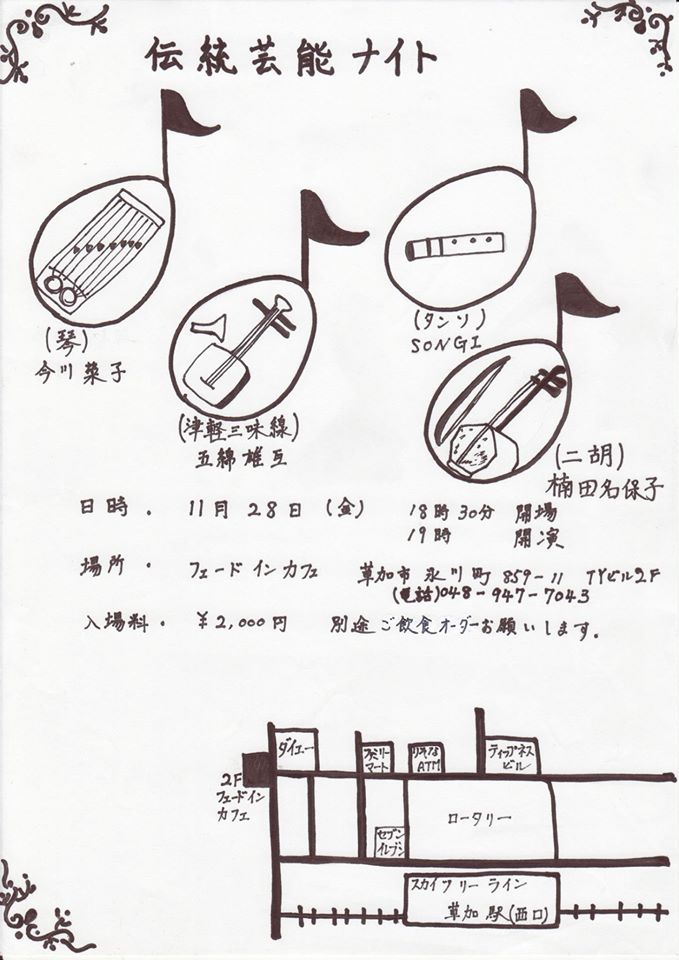 伝統芸能ナイト
(琴)
今川菜子
(津軽三味線)
五錦雄互
(タンソ)
SONGI
(二胡)
楠田名保子
日時・ 11月28日(金) 18時30分 開場
19時 開演
場所・ フェードインカフェ 草加市氷川町859-11 TYビル2F
(電話)048-947-7043
入場料・ ¥2,000円 別途ご飲食オーダーお願いします。
ダイエー
ファミリー
マート
りそな
ATM
ティップネス
ビル
2F
フェードイン
カフェ
ロータリー
セブン
イレブン
スカイツリーライン
草加駅(西口)